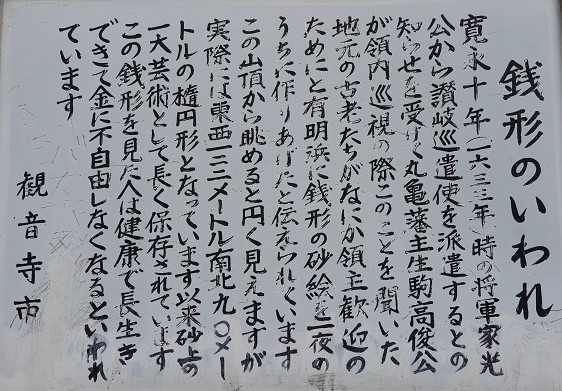 銭形のいわれ
寛永十年(一六三三年)時の将軍家光
公から讃岐巡遣使を派遣するとの
知らせを受け丸亀藩主生駒高俊公
が領内巡視の際このことを聞いた
地元の古老たちがなにか領主歓迎の
ためにと有明浜に銭形の砂絵を一夜の
うちに作りあげたと伝えられています
この山頂から眺めると円く見えますが
実際には東西一二二メートル南北九〇メー
トルの楕円形となっています以来砂上の
一大芸術として長く保存されています
この銭形を見た人は健康で長生き
できて金に不自由しなくなるといわれ
ています
観音寺市